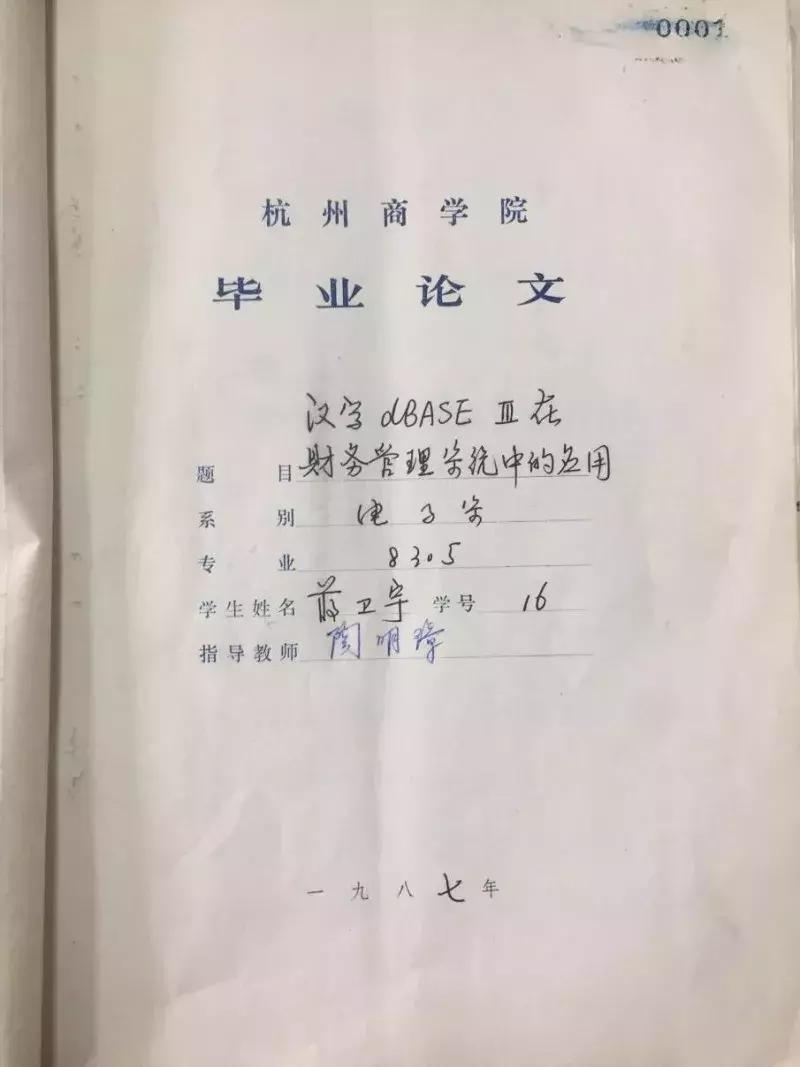 0001
杭州商学院
毕业论文
汉字 dBASE III 在
题目 财务管理系统中的应用
系别 电子系
专业 8305
学生姓名 蒋卫宇 学号 16
指导教师 陶明璋
一九八七年